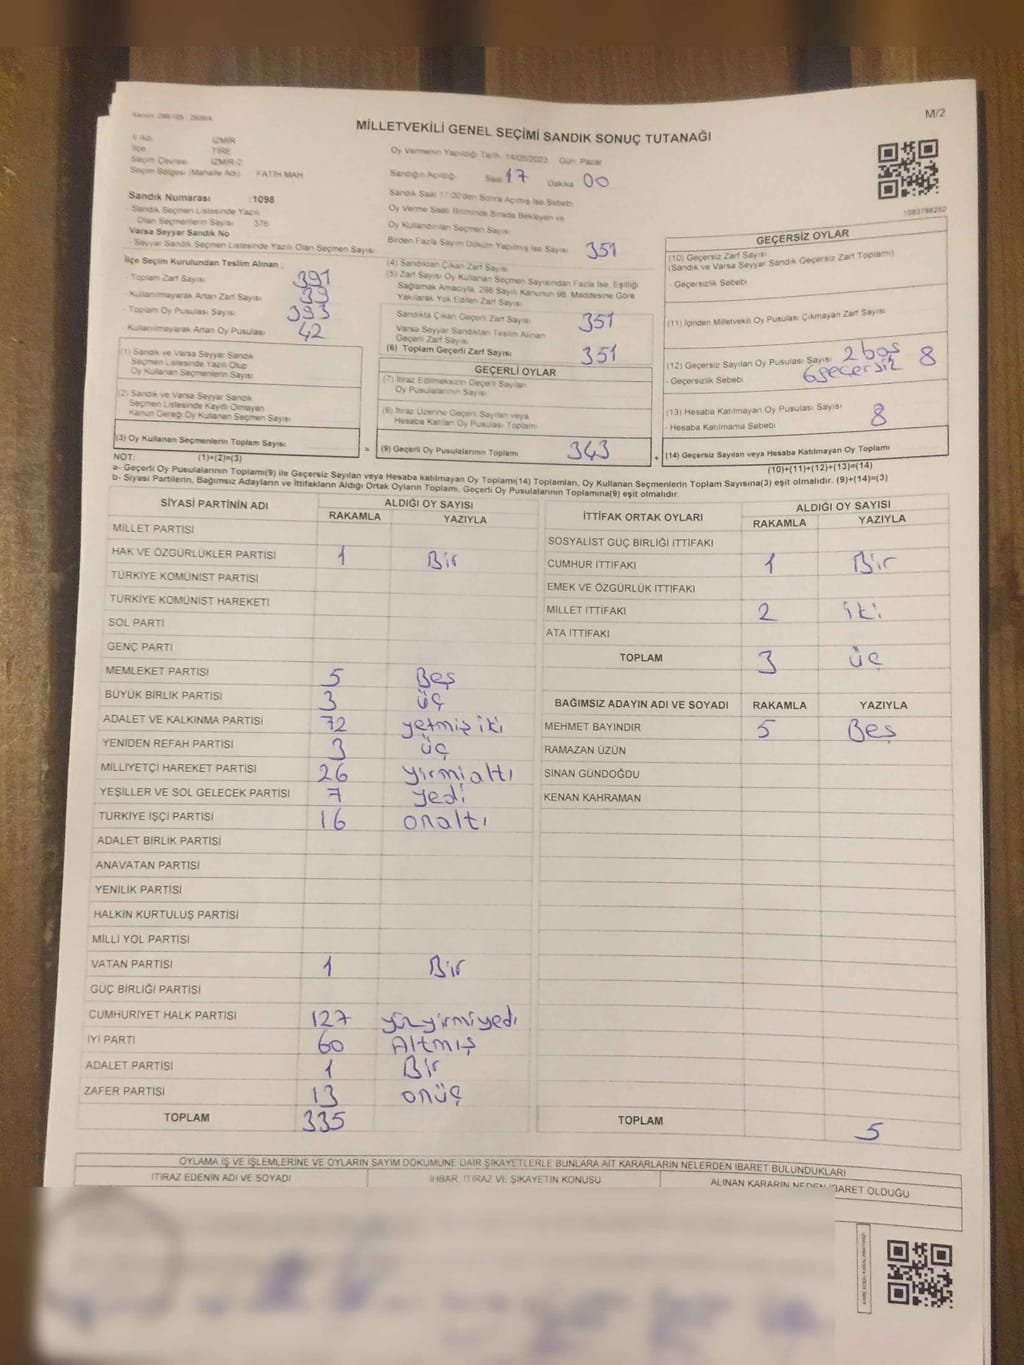 M/2
MİLLETVEKİLİ GENEL SEÇİMİ SANDIK SONUÇ TUTANAĞI
İZMİR
İlçe TİRE
Seçim Çevresi İZMİR-2
Seçim Bölgesi (Mahalle Adı) FATİH MAH
Sandık Numarası :1098
Sandık Seçmen Listesinde Yazılı
Olan Seçmenlerin Sayısı 376
Varsa Seyyar Sandık No
- Seyyar Sandık Seçmen Listesinde Yazılı Olan Seçmen Sayısı
İlçe Seçim Kurulundan Teslim Alınan :
Toplam Zarf Sayısı 391
- Kullanılmayarak Artan Zarf Sayısı 39
- Toplam Oy Pusulası Sayısı 393
- Kullanılmayarak Artan Oy Pusulası 42
(1) Sandık ve Varsa Seyyar Sandık
Seçmen Listesinde Yazılı Olup
Oy Kullanan Seçmenlerin Sayısı
(2) Sandık ve Varsa Seyyar Sandık
Seçmen Listesinde Kayıtlı Olmayan
Kanun Gereği Oy Kullanan Seçmen Sayısı
(3) Oy Kullanan Seçmenlerin Toplam Sayısı
Oy Vermenin Yapıldığı Tarih 14/05/2023 Gün Pazar
Sandığın Açıldığı Saat 17 Dakika 00
Sandık Saat 17:00'den Sonra Açılmış İse Sebebi
Oy Verme Saati Bitiminde Sırada Bekleyen ve
Oy Kullandırılan Seçmen Sayısı
Birden Fazla Sayım Döküm Yapılmış İse Sayısı
(4) Sandıktan Çıkan Zarf Sayısı 351
(5) Zarf Sayısı Oy Kullanan Seçmen Sayısından Fazla İse, Eşitliği
Sağlamak Amacıyla, 298 Sayılı Kanunun 98. Maddesine Göre
Yakılarak Yok Edilen Zarf Sayısı
Sandıkta Çıkan Geçerli Zarf Sayısı 351
Varsa Seyyar Sandıktan Teslim Alınan
Geçerli Zarf Sayısı
(6) Toplam Geçerli Zarf Sayısı 351
GEÇERLİ OYLAR
(7) İtiraz Edilmeksizin Geçerli Sayılan
Oy Pusulalarının Sayısı
(8) İtiraz Üzerine Geçerli Sayılan veya
Hesaba Katılan Oy Pusulaları Toplamı
= (9) Geçerli Oy Pusulalarının Toplamı 343 +
1083788292
GEÇERSİZ OYLAR
(10) Geçersiz Zarf Sayısı
(Sandık ve Varsa Seyyar Sandık Geçersiz Zarf Toplamı)
- Geçersizlik Sebebi
(11) İçinden Milletvekili Oy Pusulası Çıkmayan Zarf Sayısı
(12) Geçersiz Sayılan Oy Pusulası Sayısı 2 boş 8
- Geçersizlik Sebebi 6 geçersiz
(13) Hesaba Katılmayan Oy Pusulası Sayısı
- Hesaba Katılmama Sebebi 8
(14) Geçersiz Sayılan veya Hesaba Katılmayan Oy Toplamı
NOT: (1)+(2)=(3)
(10)+(11)+(12)+(13)=(14)
a- Geçerli Oy Pusulalarının Toplamı(9) ile Geçersiz Sayılan veya Hesaba katılmayan Oy Toplamı(14) Toplamları, Oy Kullanan Seçmenlerin Toplam Sayısına(3) eşit olmalıdır. (9)+(14)=(3)
b- Siyasi Partilerin, Bağımsız Adayların ve İttifakların Aldığı Ortak Oyların Toplamı, Geçerli Oy Pusulalarının Toplamına(9) eşit olmalıdır.
SİYASİ PARTİNİN ADI ALDIĞI OY SAYISI
RAKAMLA YAZIYLA
MİLLET PARTİSİ
HAK VE ÖZGÜRLÜKLER PARTİSİ 1 Bir
TÜRKİYE KOMÜNİST PARTİSİ
TÜRKİYE KOMÜNİST HAREKETİ
SOL PARTİ
GENÇ PARTİ
MEMLEKET PARTİSİ 5 Beş
BÜYÜK BİRLİK PARTİSİ 3 üç
ADALET VE KALKINMA PARTİSİ 72 yetmiş iki
YENİDEN REFAH PARTİSİ 3 üç
MİLLİYETÇİ HAREKET PARTİSİ 26 yirmialtı
YEŞİLLER VE SOL GELECEK PARTİSİ 7 yedi
TÜRKİYE İŞÇİ PARTİSİ 16 onaltı
ADALET BİRLİK PARTİSİ
ANAVATAN PARTİSİ
YENİLİK PARTİSİ
HALKIN KURTULUŞ PARTİSİ
MİLLİ YOL PARTİSİ
VATAN PARTİSİ 1 Bir
GÜÇ BİRLİĞİ PARTİSİ
CUMHURİYET HALK PARTİSİ 127 yüzyirmiyedi
İYİ PARTİ 60 Altmış
ADALET PARTİSİ 1 Bir
ZAFER PARTİSİ 13 onüç
TOPLAM 335
İTTİFAK ORTAK OYLARI ALDIĞI OY SAYISI
RAKAMLA YAZIYLA
SOSYALİST GÜÇ BİRLİĞİ İTTİFAKI
CUMHUR İTTİFAKI 1 Bir
EMEK VE ÖZGÜRLÜK İTTİFAKI
MİLLET İTTİFAKI 2 iki
ATA İTTİFAKI
TOPLAM 3 üç
BAĞIMSIZ ADAYIN ADI VE SOYADI RAKAMLA YAZIYLA
MEHMET BAYINDIR 5 Beş
RAMAZAN ÜZÜN
SİNAN GÜNDOĞDU
KENAN KAHRAMAN
TOPLAM 5
OYLAMA İŞ VE İŞLEMLERİNE VE OYLARIN SAYIM DÖKÜMÜNE DAİR ŞİKAYETLERLE BUNLARA AİT KARARLARIN NELERDEN İBARET BULUNDUKLARI
İTİRAZ EDENİN ADI VE SOYADI İHBAR, İTİRAZ VE ŞİKAYETİN KONUSU ALINAN KARARIN NEDEN İBARET OLDUĞU